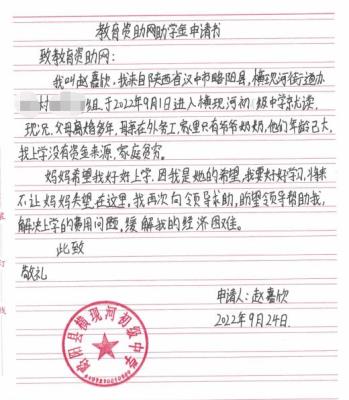 教育资助网助学金申请书
致教育资助网：
我叫赵嘉欣，我来自陕西省汉中市略阳县，横现河街道办
村 组，于2022年9月1日进入横现河初级中学就读，
现况，父母离婚多年，母亲在外务工，家里只有爷爷奶奶，他们年龄已大，
我上学没有资金来源，家庭贫穷。
妈妈希望我好好上学，因我是她的希望，我要好好学习，将来
不让妈妈失望，在这里，我再次向领导求助，盼望领导帮助我，
解决上学的费用问题，缓解我的经济困难。
此致
敬礼
申请人：赵嘉欣
2022年9月24日.
略阳县横现河初级中学
订
线